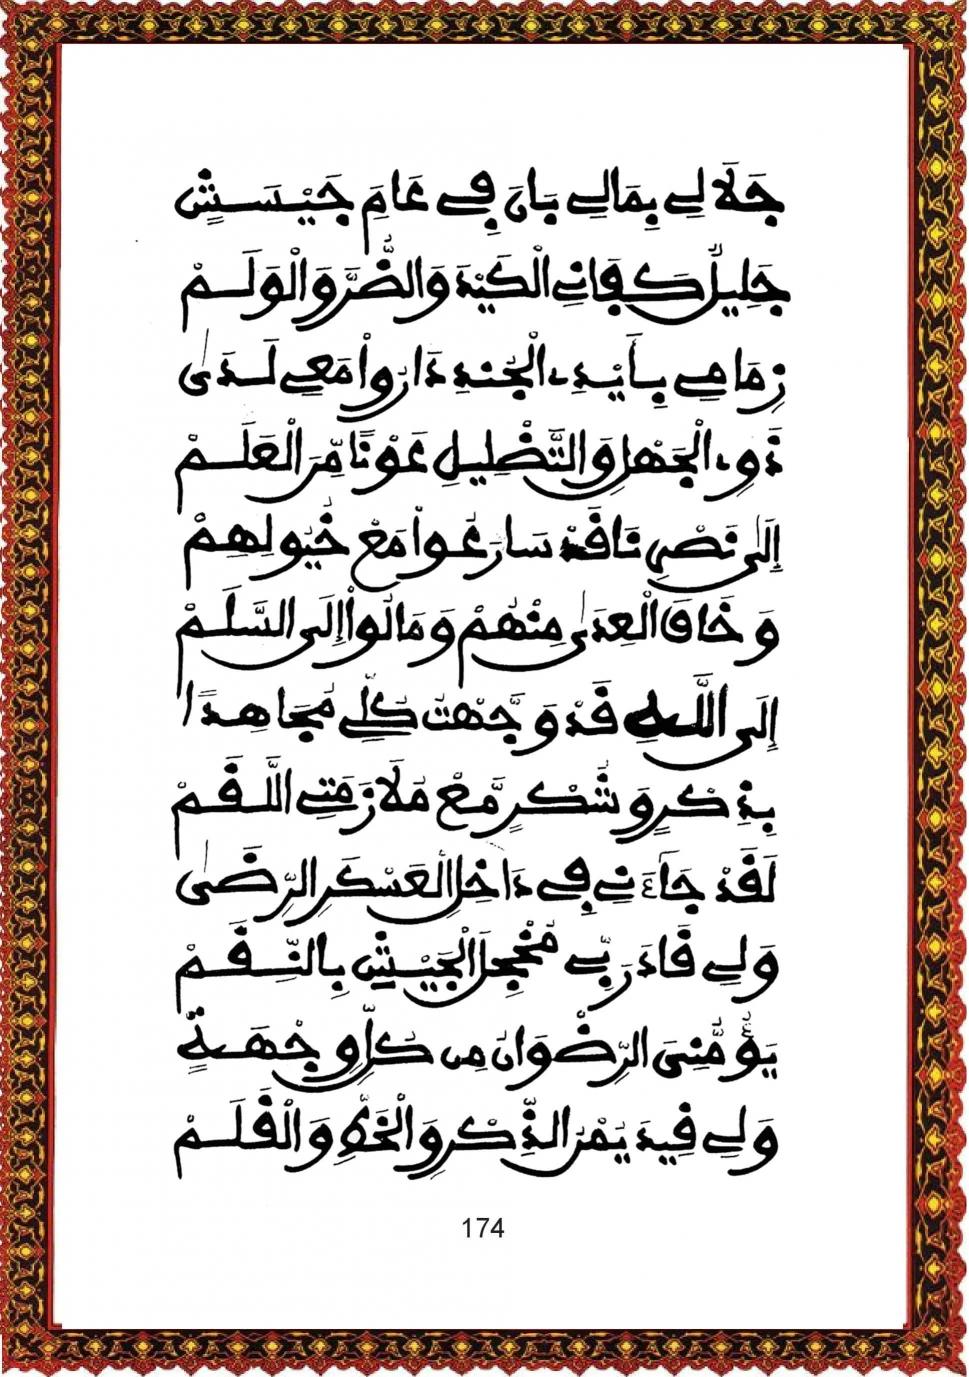 جَلَالِي بِمَالِي بَانَ فِي عَامِ جَيْسَشٍ
جَلِيلٌ كَفَانِي الْكَيْدَ وَالضُّرَّ وَالْوَلَمْ
زِمَامِي بِأَيْدِي الْجُنْدِ دَارُواْ مَعِي لَدَى
ذَوِي الْجَهْلِ وَالتَّضْلِيلِ عَوْنًا مِّنَ الْعَلَمْ
إِلَى نَصْرِنَا قَدْ سَارَعُواْ مَعْ خُيُولِهِمْ
وَخَافَ الْعِدَى مِنْهُمْ وَمَالُواْ إِلَى السَّلَمْ
إِلَى اللَّهِ قَدْ وَجَّهْتُ كُلِّي مُجَاهِدًا
بِذِكْرٍ وَشُكْرٍ مَّعْ مُلَازَمَتِي اللَّقَمْ
لَقَدْ جَاءَنِي فِي دَاخِلِ الْعَسْكَرِ الرِّضَى
وَلِي قَادَ رَبِّي مُخْجِلَ الْجَيْشِ بِالنِّقَمْ
يُؤَمِّنُنِي الرِّضْوَانُ مِن كُلِّ وِجْهَةٍ
وَلِي قِيدَ يُمْنُ الذِّكْرِ وَالْخَطِّ وَالْقَلَمْ
174